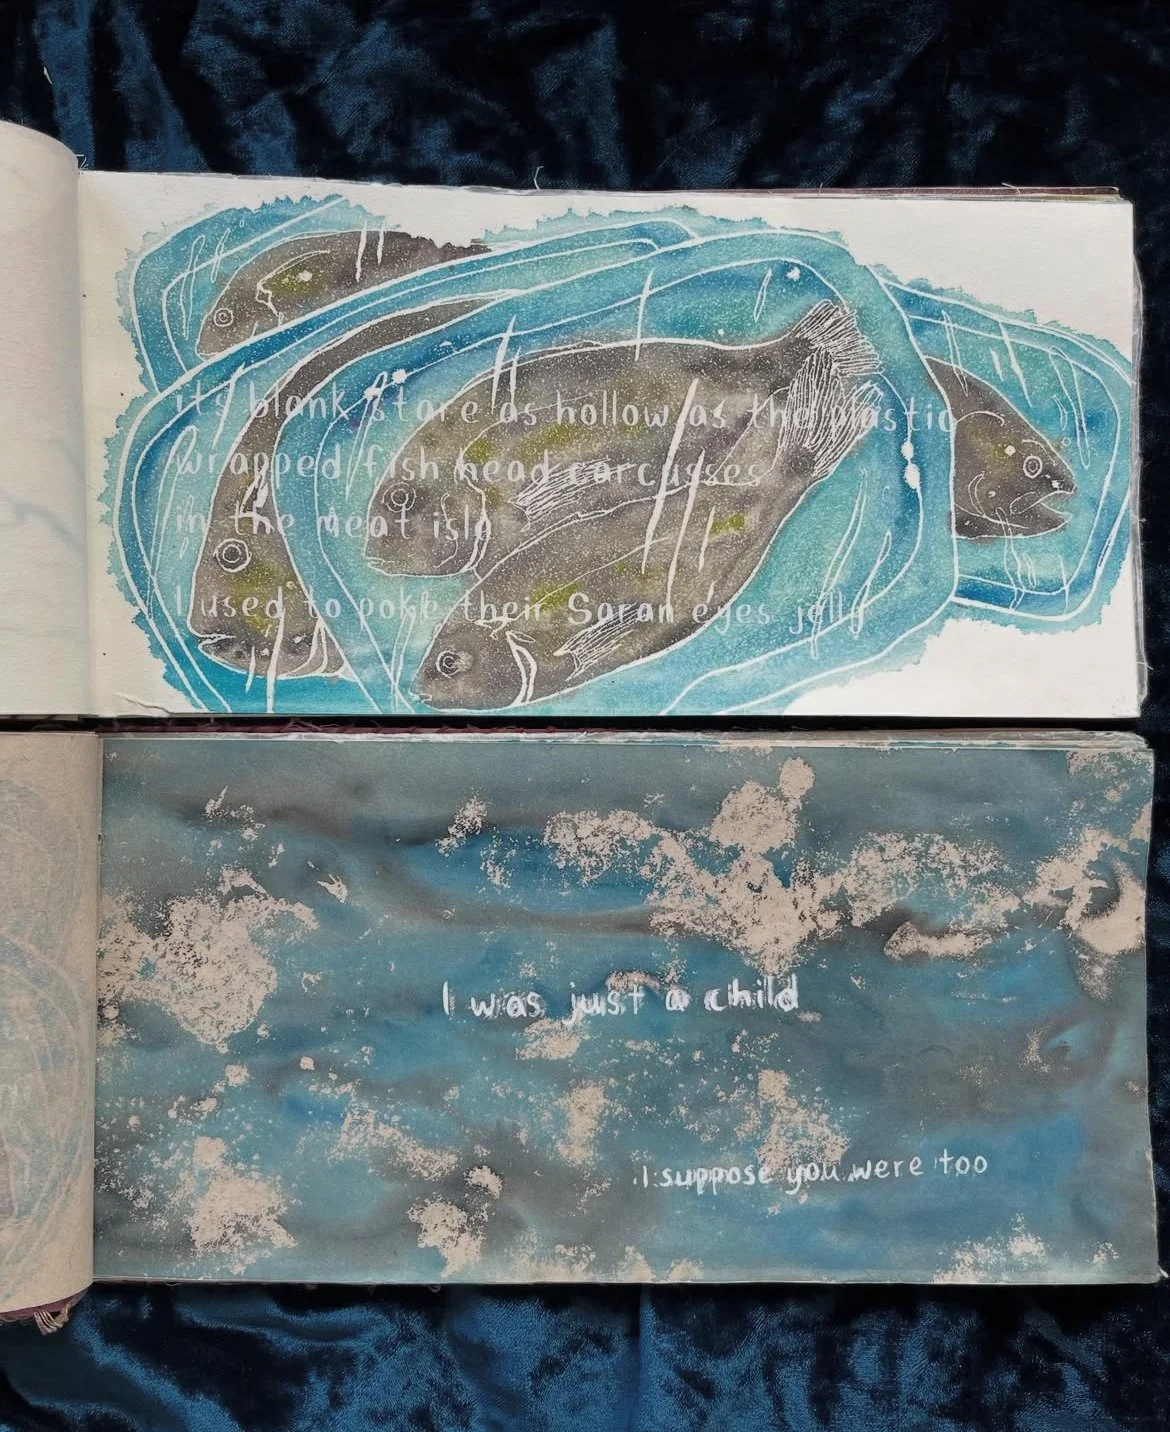 its blank stare as hollow as the plastic
wrapped fish head carcasses
in the meat isle
I used to poke their Saran eyes jelly
I was just a child
I suppose you were too